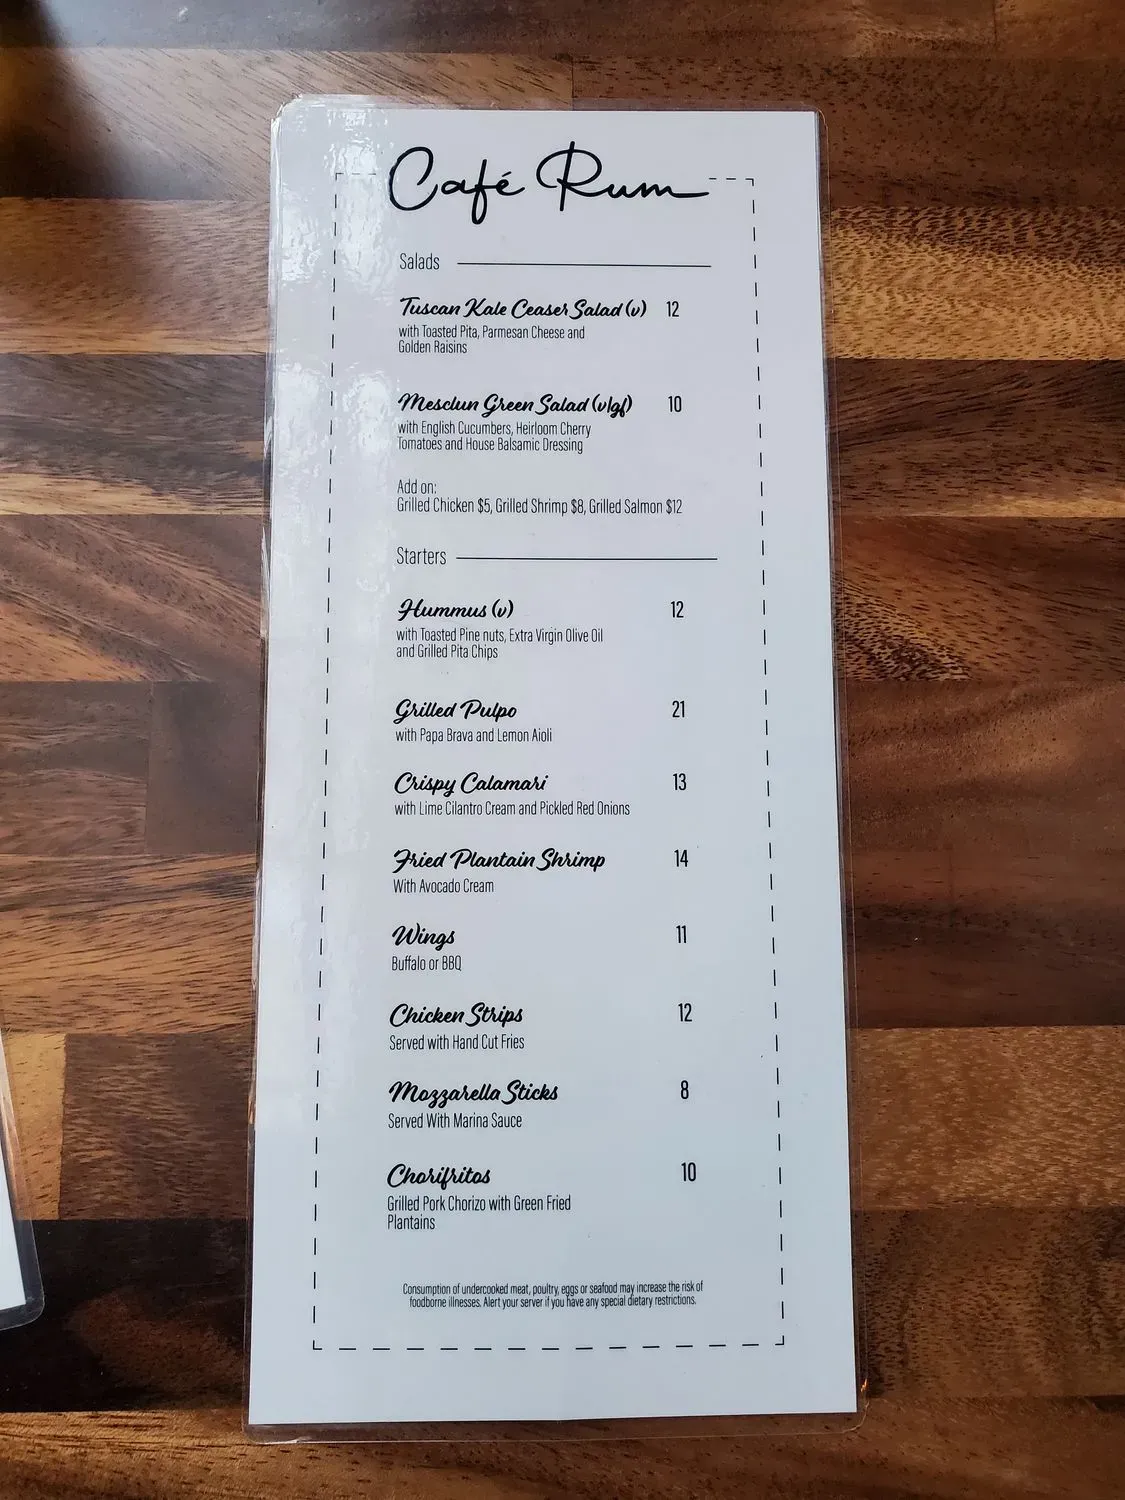 Café Rum
Salads
Tuscan Kale Ceaser Salad (v) 12
with Toasted Pita, Parmesan Cheese and
Golden Raisins
Mesclun Green Salad (v|gf) 10
with English Cucumbers, Heirloom Cherry
Tomatoes and House Balsamic Dressing
Add on:
Grilled Chicken $5, Grilled Shrimp $8, Grilled Salmon $12
Starters
Hummus (v) 12
with Toasted Pine nuts, Extra Virgin Olive Oil
and Grilled Pita Chips
Grilled Pulpo 21
with Papa Brava and Lemon Aioli
Crispy Calamari 13
with Lime Cilantro Cream and Pickled Red Onions
Fried Plantain Shrimp 14
With Avocado Cream
Wings 11
Buffalo or BBQ
Chicken Strips 12
Served with Hand Cut Fries
Mozzarella Sticks 8
Served With Marina Sauce
Chorifritos 10
Grilled Pork Chorizo with Green Fried
Plantains
Consumption of undercooked meat, poultry, eggs or seafood may increase the risk of
foodborne illnesses. Alert your server if you have any special dietary restrictions.